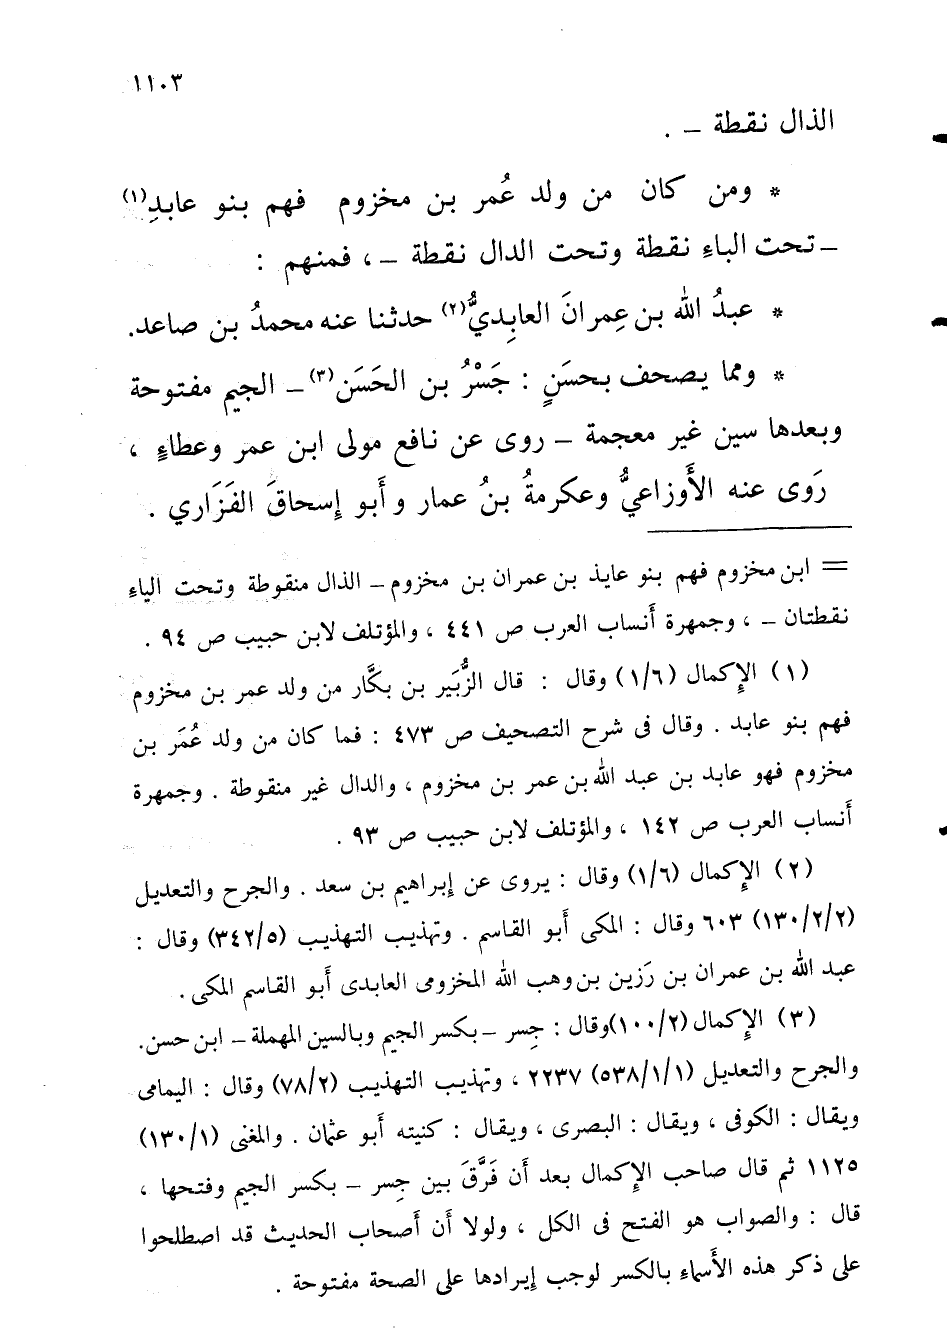 ١١٠٣
الذال نقطة – .
* ومن كان من ولد عُمر بن مخزوم فهم بنو عابدِ(١)
– تحت الباءِ نقطة وتحت الدال نقطة – ، فمنهم :
* عبدُ الله بن عِمرانَ العابِديُّ(٢) حدثنا عنه محمدُ بن صاعد.
* ومما يصحف بحسَنٍ : جَسْرُ بن الحَسَن(٣) – الجيم مفتوحة
وبعدها سين غير معجمة – روى عن نافع مولى ابن عمر وعطاءٍ ،
رَوى عنه الأَوزاعيُّ وعكرمةُ بنُ عمار وأَبو إِسحاقَ الفَزَاري .
= ابن مخزوم فهم بنو عايذ بن عمران بن مخزوم – الذال منقوطة وتحت الياءِ
نقطتان – ، وجمهرة أَنساب العرب ص ٤٤١ ، والمؤتلف لابن حبيب ص ٩٤ .
(١) الإِكمال (١/٦) وقال : قال الزُّبَير بن بكَّار من ولد عمر بن مخزوم
فهم بنو عابد . وقال فى شرح التصحيف ص ٤٧٣ : فما كان من ولد عُمَر بن
مخزوم فهو عابد بن عبد الله بن عمر بن مخزوم ، والدال غير منقوطة . وجمهرة
أَنساب العرب ص ١٤٢ ، والمؤتلف لابن حبيب ص ٩٣ .
(٢) الإِكمال (١/٦) وقال : يروى عن إِبراهيم بن سعد . والجرح والتعديل
(١٣٠/٢/٢) ٦٠٣ وقال : المكى أَبو القاسم . وتهذيب التهذيب (٣٤٢/٥) وقال :
عبد الله بن عمران بن رَزين بن وهب الله المخزومى العابدى أَبو القاسم المكى .
(٣) الإِكمال (١٠٠/٢) وقال : جِسر – بكسر الجيم وبالسين المهملة – ابن حسن.
والجرح والتعديل (٥٣٨/١/١) ٢٢٣٧ ، وتهذيب التهذيب (٧٨/٢) وقال : اليمامى
ويقال : الكوفى ، ويقال : البصرى ، ويقال : كنيته أَبو عثمان . والمغنى (١٣٠/١)
١١٢٥ ثم قال صاحب الإِكمال بعد أَن فَرَّقَ بين جِسر – بكسر الجيم وفتحها ،
قال : والصواب هو الفتح فى الكل ، ولولا أَن أَصحاب الحديث قد اصطلحوا
على ذكر هذه الأَسماءِ بالكسر لوجب إِيرادها على الصحة مفتوحة .